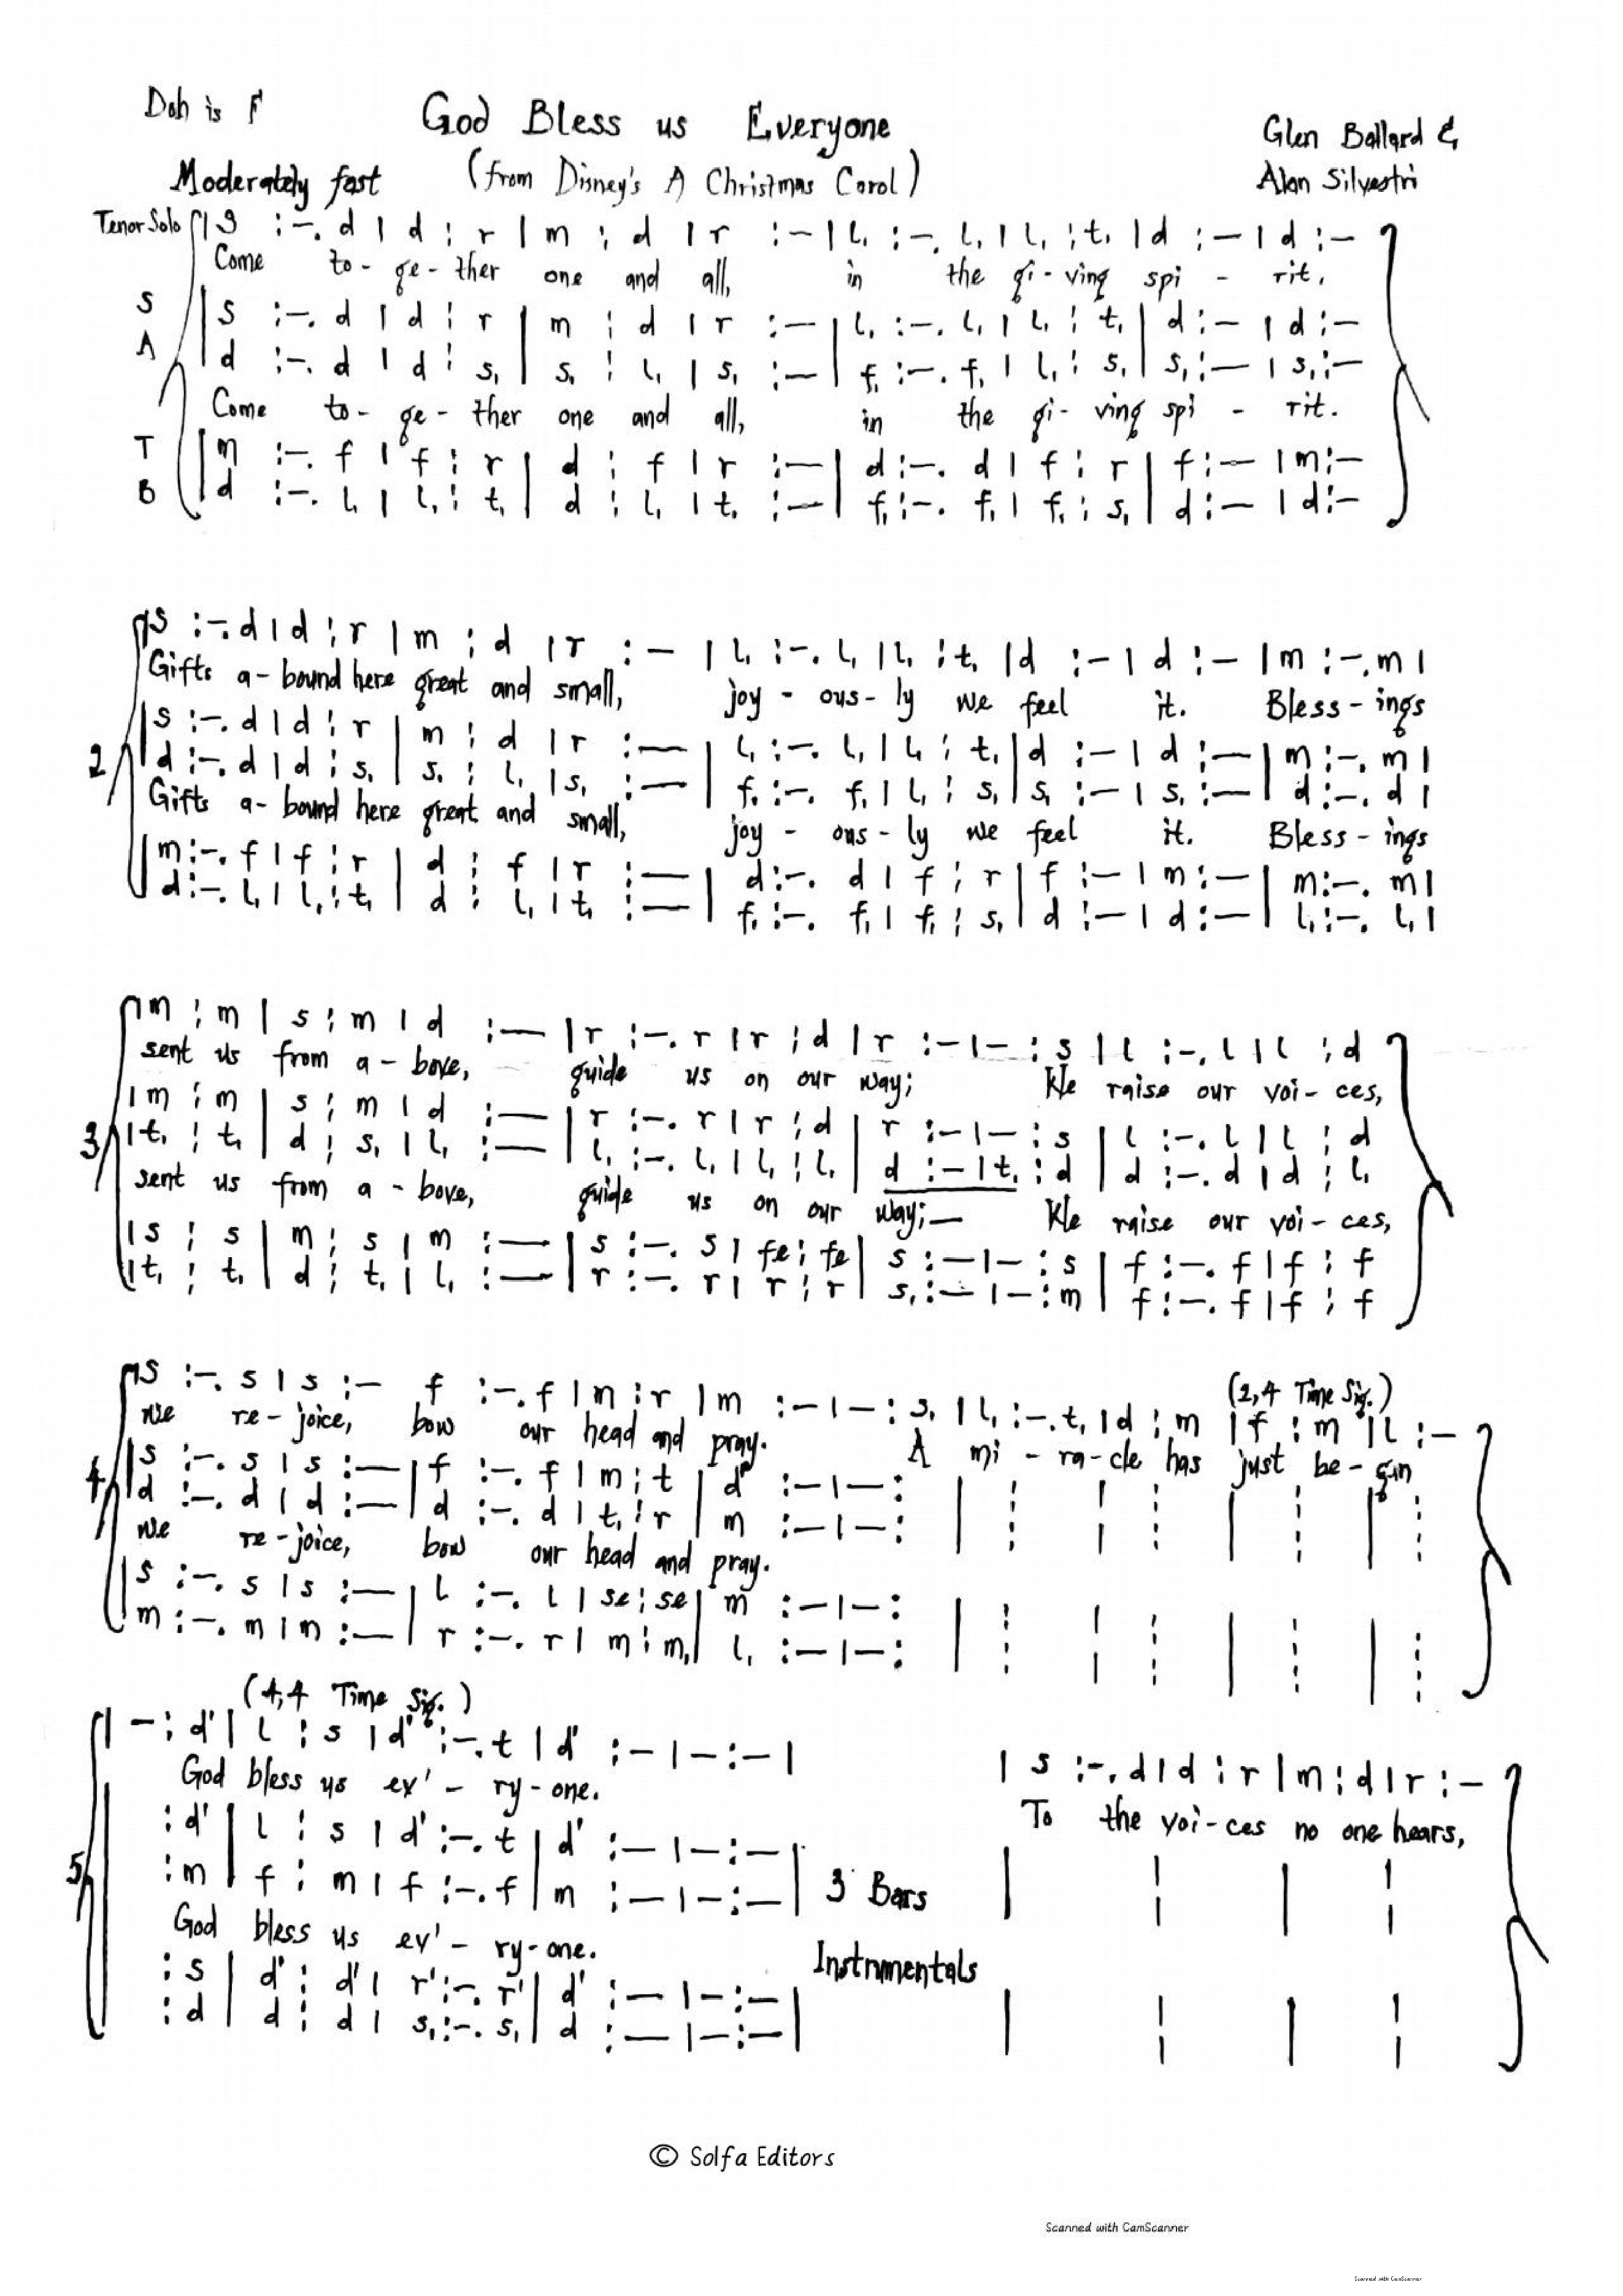 Doh is F
God Bless us Everyone
Glen Ballard &
Moderately fast
(from Disney's A Christmas Carol)
Alan Silvestri
Tenor Solo | s :-. d | d : r | m : d | r :- | l, :-. l, | l, : t, | d :- | d :-
Come to-ge-ther one and all, in the gi-ving spi-rit.
S | s :-. d | d : r | m : d | r :- | l, :-. l, | l, : t, | d :- | d :-
A | d :-. d | d : s, | s, : l, | s, :- | f, :-. f, | l, : s, | s, :- | s, :-
Come to-ge-ther one and all, in the gi-ving spi-rit.
T | m :-. f | f : r | d : f | r :- | d :-. d | f : r | f :- | m :-
B | d :-. l, | l, : t, | d : l, | t, :- | f, :-. f, | f, : s, | d :- | d :-
| s :-. d | d : r | m : d | r :- | l, :-. l, | l, : t, | d :- | d :- | m :-. m |
Gifts a-bound here great and small, joy-ous-ly we feel it. Bless-ings
| s :-. d | d : r | m : d | r :- | l, :-. l, | l, : t, | d :- | d :- | m :-. m |
2
| d :-. d | d : s, | s, : l, | s, :- | f, :-. f, | l, : s, | s, :- | s, :- | d :-. d |
Gifts a-bound here great and small, joy-ous-ly we feel it. Bless-ings
| m :-. f | f : r | d : f | r :- | d :-. d | f : r | f :- | m :- | m :-. m |
| d :-. l, | l, : t, | d : l, | t, :- | f, :-. f, | f, : s, | d :- | d :- | l, :-. l, |
| m : m | s : m | d :- | r :-. r | r : d | r :- | - : s | l :-. l | l : d
sent us from a-bove, guide us on our way; We raise our voi-ces,
| m : m | s : m | d :- | r :-. r | r : d | r :- | - : s | l :-. l | l : d
3
| t, : t, | d : s, | l, :- | l, :-. l, | l, : l, | d :- | t, : d | d :-. d | d : l,
sent us from a-bove, guide us on our way;- We raise our voi-ces,
| s : s | m : s | m :- | s :-. s | fe : fe | s :- | - : s | f :-. f | f : f
| t, : t, | d : t, | l, :- | r :-. r | r : r | s, :- | - : m | f :-. f | f : f
(2,4 Time Sig.)
| s :-. s | s :- f :-. f | m : r | m :- | - : s, | l, :-. t, | d : m | f : m | l :-
we re-joice, bow our head and pray. A mi-ra-cle has just be-gun
| s :-. s | s :- | f :-. f | m : t | d' :- | - :
4
| d :-. d | d :- | d :-. d | t, : r | m :- | - :
we re-joice, bow our head and pray.
| s :-. s | s :- | l :-. l | se : se | m :- | - :
m :-. m | m :- | r :-. r | m : m, | l, :- | - :
(4,4 Time Sig.)
| - : d' | l : s | d' :-. t | d' :- | - :- |
| s :-. d | d : r | m : d | r :-
God bless us ev'-ry-one.
To the voi-ces no one hears,
: d' | l : s | d' :-. t | d' :- | - :- |
5
: m | f : m | f :-. f | m :- | - :- |
3 Bars
God bless us ev'-ry-one.
Instrumentals
: s | d' : d' | r' :-. r' | d' :- | - :- |
: d | d : d | s, :-. s, | d :- | - :- |
© Solfa Editors
Scanned with CamScanner
Scanned with CamScanner